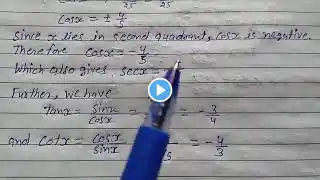 25 25
Cosx = ± 4/5
Since x lies in second quadrant, cosx is negative.
Therefore Cosx = -4/5
Which also gives, secx =
Further, we have
tanx = Sinx/Cosx = -3/4
and Cotx = Cosx/Sinx = -4/3